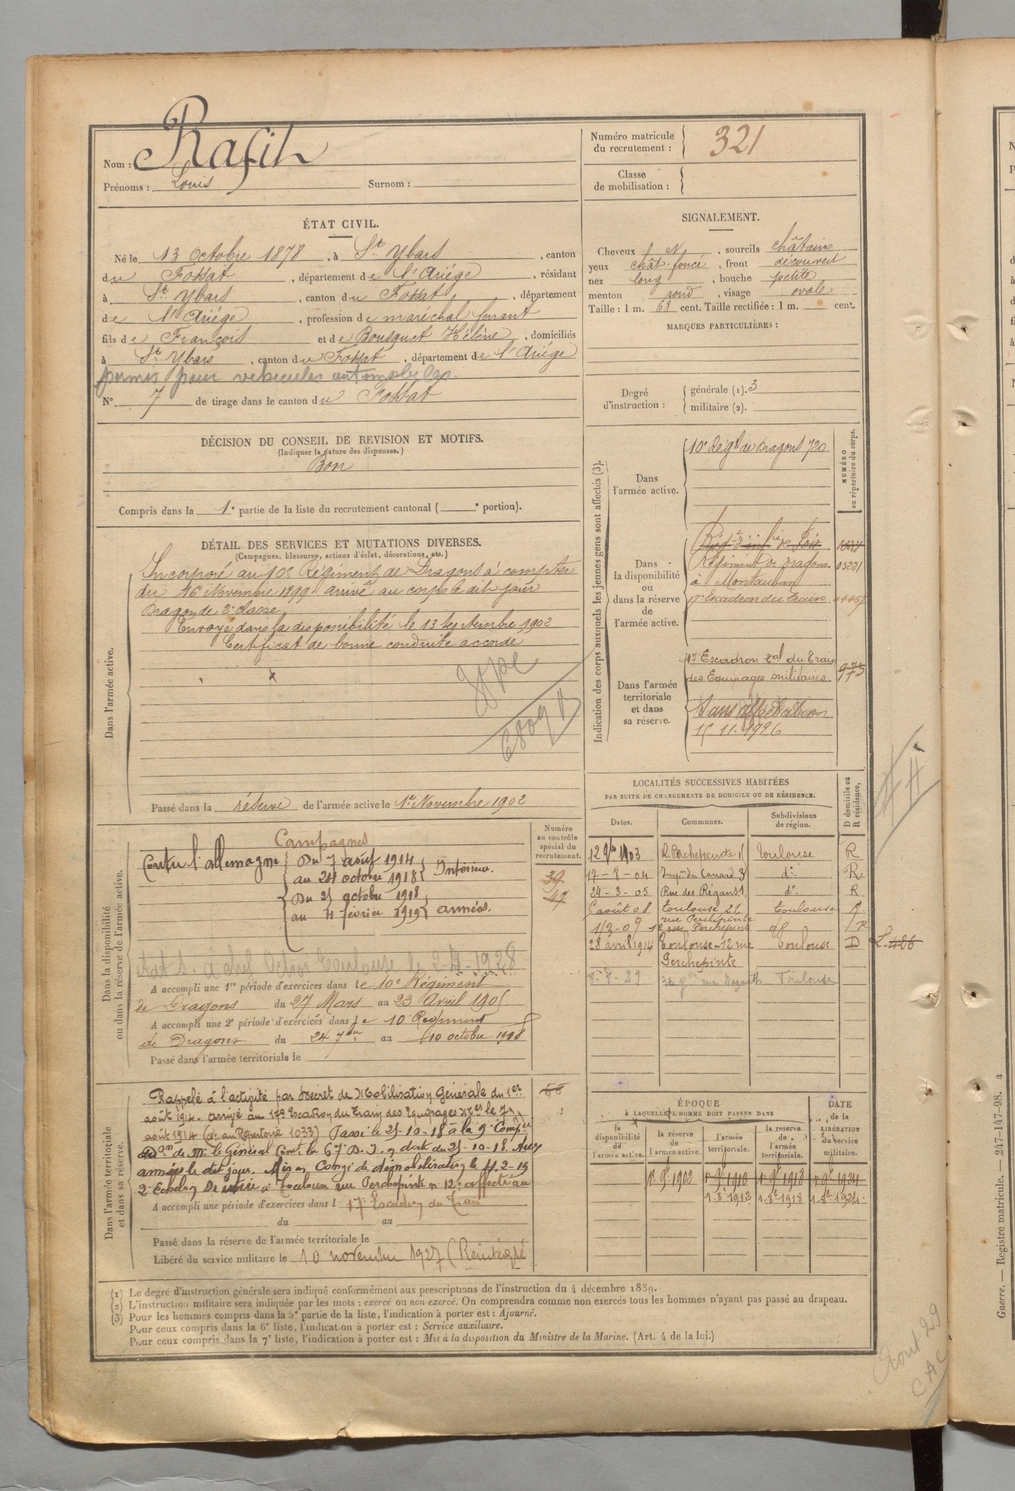 Nom : Rafih
Prénoms : Louis Surnom :
Numéro matricule du recrutement : 321
Classe de mobilisation :
ÉTAT CIVIL.
Né le 13 Octobre 1878, à St Ybars, canton
du Fossat, département de l'Ariége, résidant
à St Ybars, canton du Fossat, département
de l'Ariége, profession de maréchal ferrant
fils de François et de Bousquet Hélène, domiciliés
à St Ybars, canton du Fossat, département de l'Ariége
permis pour vehicules automobiles.
N° 7 de tirage dans le canton du Fossat
SIGNALEMENT.
Cheveux f. N., sourcils châtains
yeux chât. foncé, front découvert
nez long, bouche petite
menton rond, visage ovale
Taille : 1 m. 68 cent. Taille rectifiée : 1 m. cent.
MARQUES PARTICULIÈRES :
Degré d'instruction : générale (1). 3
militaire (2).
DÉCISION DU CONSEIL DE REVISION ET MOTIFS.
(Indiquer la nature des dispenses.)
Bon
Compris dans la 1e partie de la liste du recrutement cantonal ( e portion).
DÉTAIL DES SERVICES ET MUTATIONS DIVERSES.
(Campagnes, blessures, actions d'éclat, décorations, etc.)
Dans l'armée active.
Incorporé au 10e Régiment de Dragons à compter
du 16 Novembre 1899 arrivé au corps le dit jour
Dragon de 2e classe.
Envoyé dans la disponibilité le 13 septembre 1902
Certificat de bonne conduite accordé
x
Passé dans la réserve de l'armée active le 1er Novembre 1902
Indication des corps auxquels les jeunes gens sont affectés (3).
NUMÉRO au répertoire du corps.
Dans l'armée active.
10e Régt de Dragons 720
Dans la disponibilité ou dans la réserve de l'armée active.
Régiment de Dragons
à Montauban
17e Escadron du Train
Dans l'armée territoriale et dans sa réserve.
17e Escadron Tal du Train
des Équipages militaires.
Sans affectation
15.11.1926
LOCALITÉS SUCCESSIVES HABITÉES
PAR SUITE DE CHANGEMENTS DE DOMICILE OU DE RÉSIDENCE.
Dates. Communes. Subdivisions de région. D domicile ou R résidence.
12 9bre 1903 R. Perchepinte Toulouse R
17-8-04 Impse du Canard 3 do R
24-3-05 Rue des Régans 1 do R
6 août 08 Toulouse 26 rue Perchepinte Toulouse R
1/3-09 rue Perchepinte R
28 avril 1914 Toulouse-12 rue Perchepinte Toulouse D
8-7-29 rue Nazareth Toulouse
Dans la disponibilité ou dans la réserve de l'armée active.
Numéro au contrôle spécial du recrutement.
Campagnes
Contre l'allemagne Du 7 août 1914
au 24 octobre 1918 Intérieur.
Du 25 octobre 1918
au 11 février 1919 armées.
A accompli une 1re période d'exercices dans le 10e Régiment
de Dragons du 27 Mars au 23 Avril 1905
A accompli une 2e période d'exercices dans le 10e Régiment
de Dragons du 24 7bre au 10 octobre 1908
Passé dans l'armée territoriale le
Dans l'armée territoriale et dans sa réserve.
Rappelé à l'activité par Décret de Mobilisation Générale du 1er
août 1914. arrivé au 17e Escadron du Train des Équipages Mres le 7
août 1914 Passé le 25-10-18 à la 9e Compie
de Mr. le Général Comt la 67e D.I. en date du 25-10-18. Aux
armées le dit jour. Mis en Congé de démobilisation le 11-2-19
à Toulouse rue Perchepinte n° 12. affecté au
A accompli une période d'exercices dans l 17e Escadron du Train
du au
Passé dans la réserve de l'armée territoriale le
Libéré du service militaire le 10 novembre 1927 (Réintégré
ÉPOQUE
À LAQUELLE L'HOMME DOIT PASSER DANS
la disponibilité de l'armée active. la réserve de l'armée active. l'armée territoriale. la réserve de l'armée territoriale.
DATE de la LIBÉRATION du service militaire.
1er 9bre 1902
(1) Le degré d'instruction générale sera indiqué conformément aux prescriptions de l'instruction du 4 décembre 1889.
(2) L'instruction militaire sera indiquée par les mots : exercé ou non exercé. On comprendra comme non exercés tous les hommes n'ayant pas passé au drapeau.
(3) Pour les hommes compris dans la 5e partie de la liste, l'indication à porter est : Ajourné.
Pour ceux compris dans la 6e liste, l'indication à porter est : Service auxiliaire.
Pour ceux compris dans la 7e liste, l'indication à porter est : Mis à la disposition du Ministre de la Marine. (Art. 4 de la loi.)
Guerre. — Registre matricule. — 247-147-98.